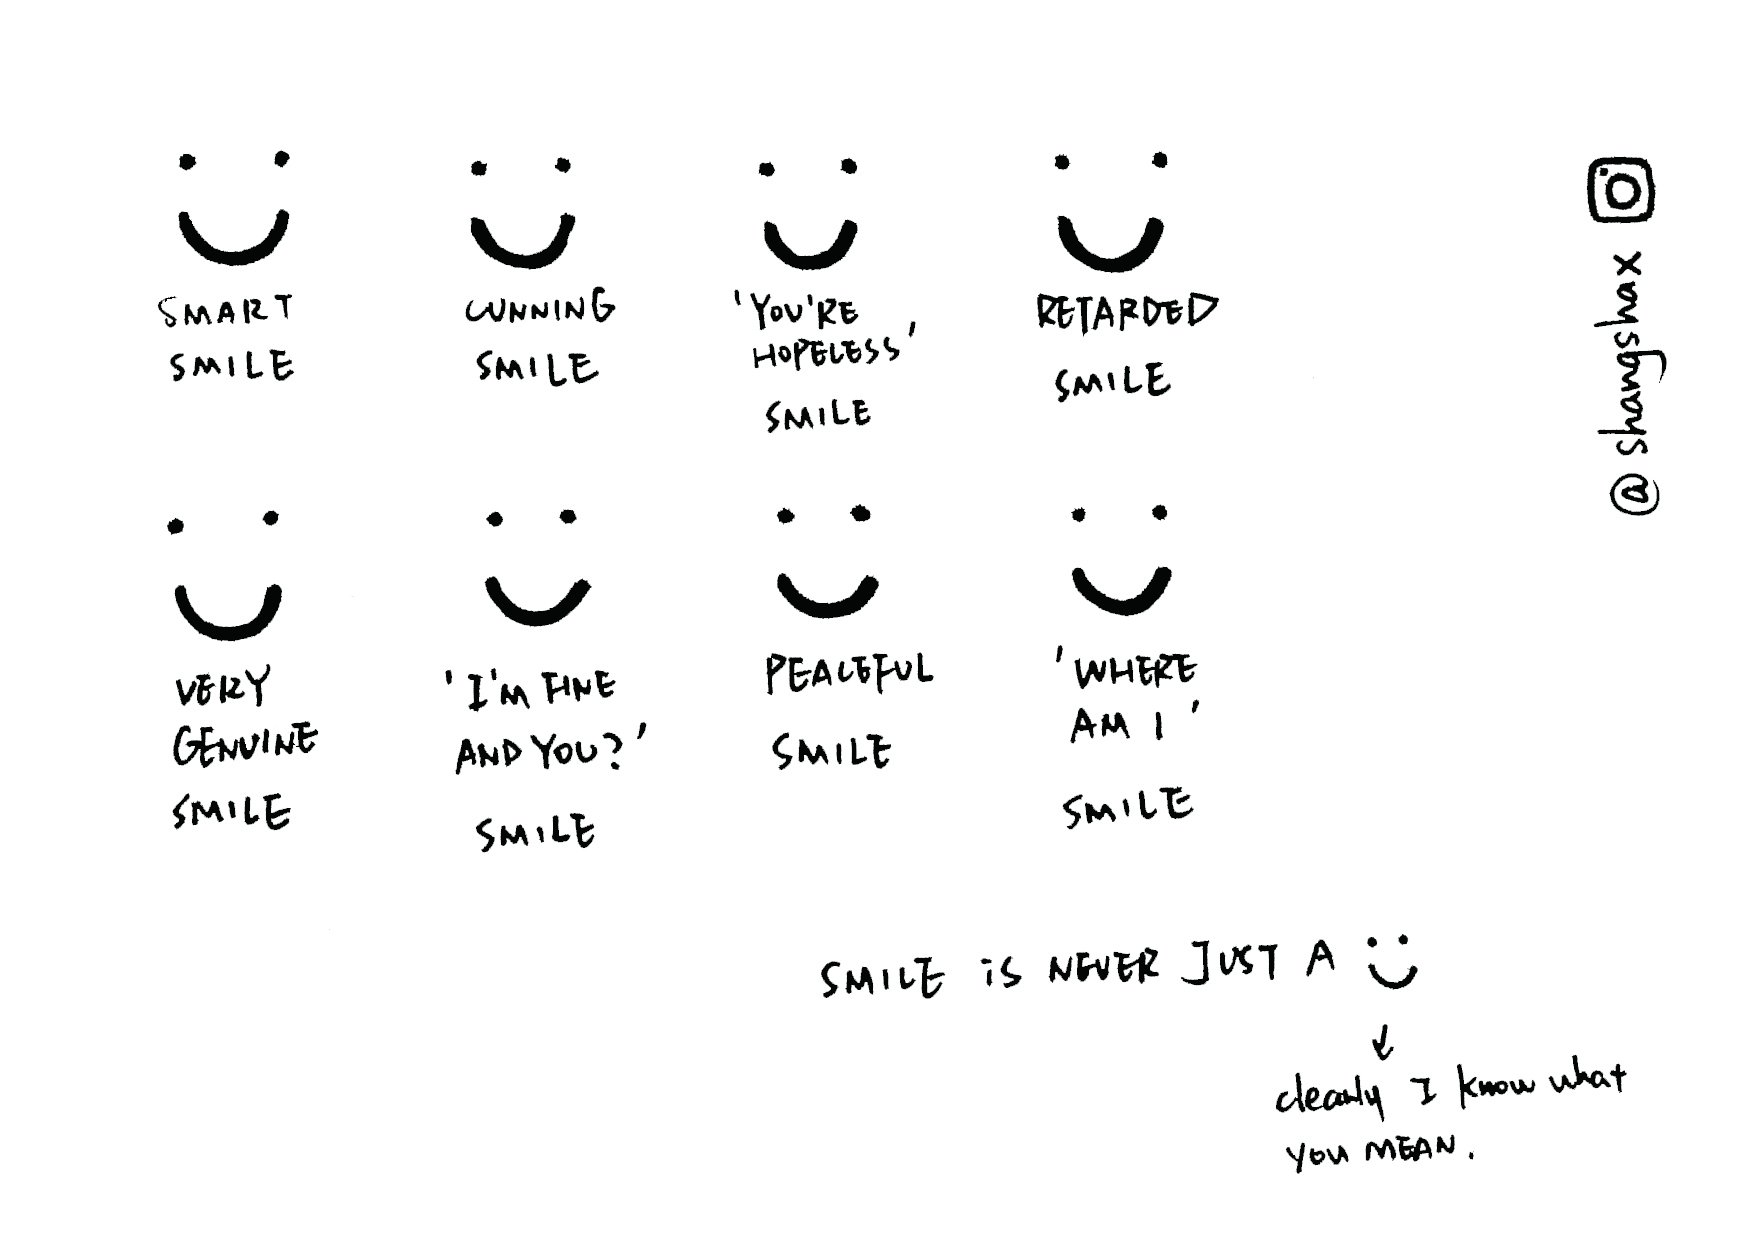 SMART
SMILE
CUNNING
SMILE
'YOU'RE
HOPELESS'
SMILE
RETARDED
SMILE
VERY
GENUINE
SMILE
'I'M FINE
AND YOU?'
SMILE
PEACEFUL
SMILE
'WHERE
AM I'
SMILE
SMILE iS NEVER JUST A
clearly I know what
YOU MEAN.
@shangshax